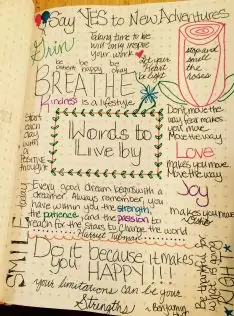 Say YES to New Adventures
Grin
Taking time to be
will only inspire
your work
be be be
patient happy okay
Let your
Heart
be light
stop and
smell
the
roses
BREATHE
Kindness is a lifestyle
Start
each
day
with
a
Positive
thought
Words to
Live by
Don't move the
way fear makes
you move.
Move the way
Love
makes you move.
Move the way
Joy
makes you move
Every good dream begins with a
dreamer. Always remember, you
have within you the strength,
the patience, and the passion to
reach for the stars to change the world
Harriet Tubman
SMILE
today
Do it because it makes
you HAPPY!!!
your limitations can be your
Strengths
~ Benjamin
be thankful for
what is
RIGH